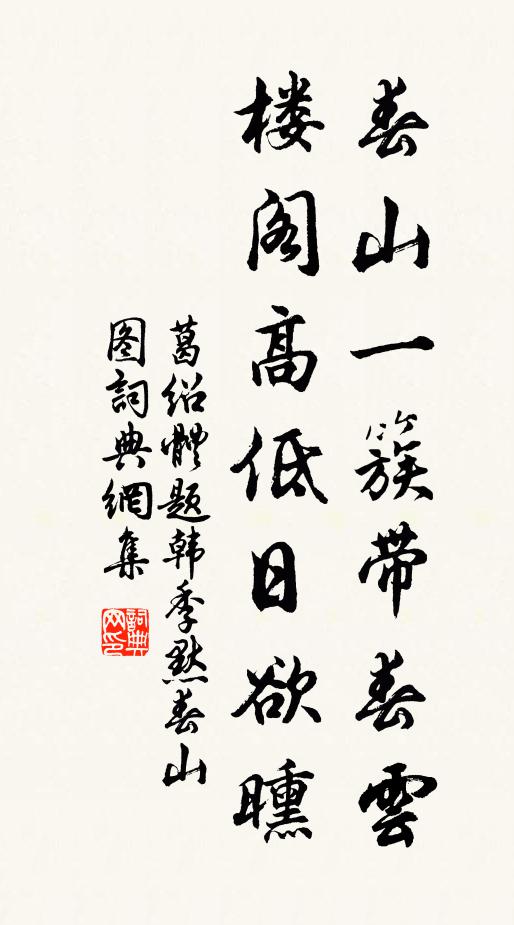 春山一簇带春雲
楼阁高低日欲曛
葛绍體题韩季默春山
图詞典網集
詞典网印